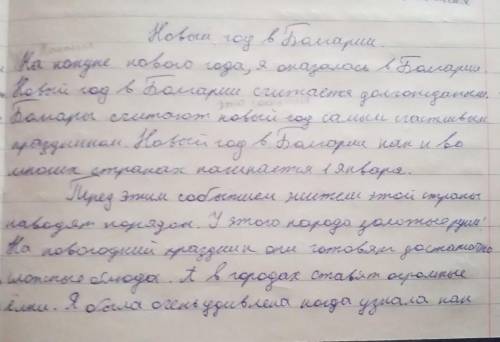 Новый год в Болгарии.
На кануне нового года, я оказалась в Болгарии.
Новый год в Болгарии считается долгожданым.
Болгары считают новый год самым счастливым
праздником. Новый год в Болгарии как и во
многих странах начинается 1 Января.
Перед этим событием жители этой страны
наводят порядок. У этого народа золотые руки!
На новогодний праздник они готовят достаточно
сложные блюда. А в городах ставят огромные
ёлки. Я была очень удивлена когда узнала как